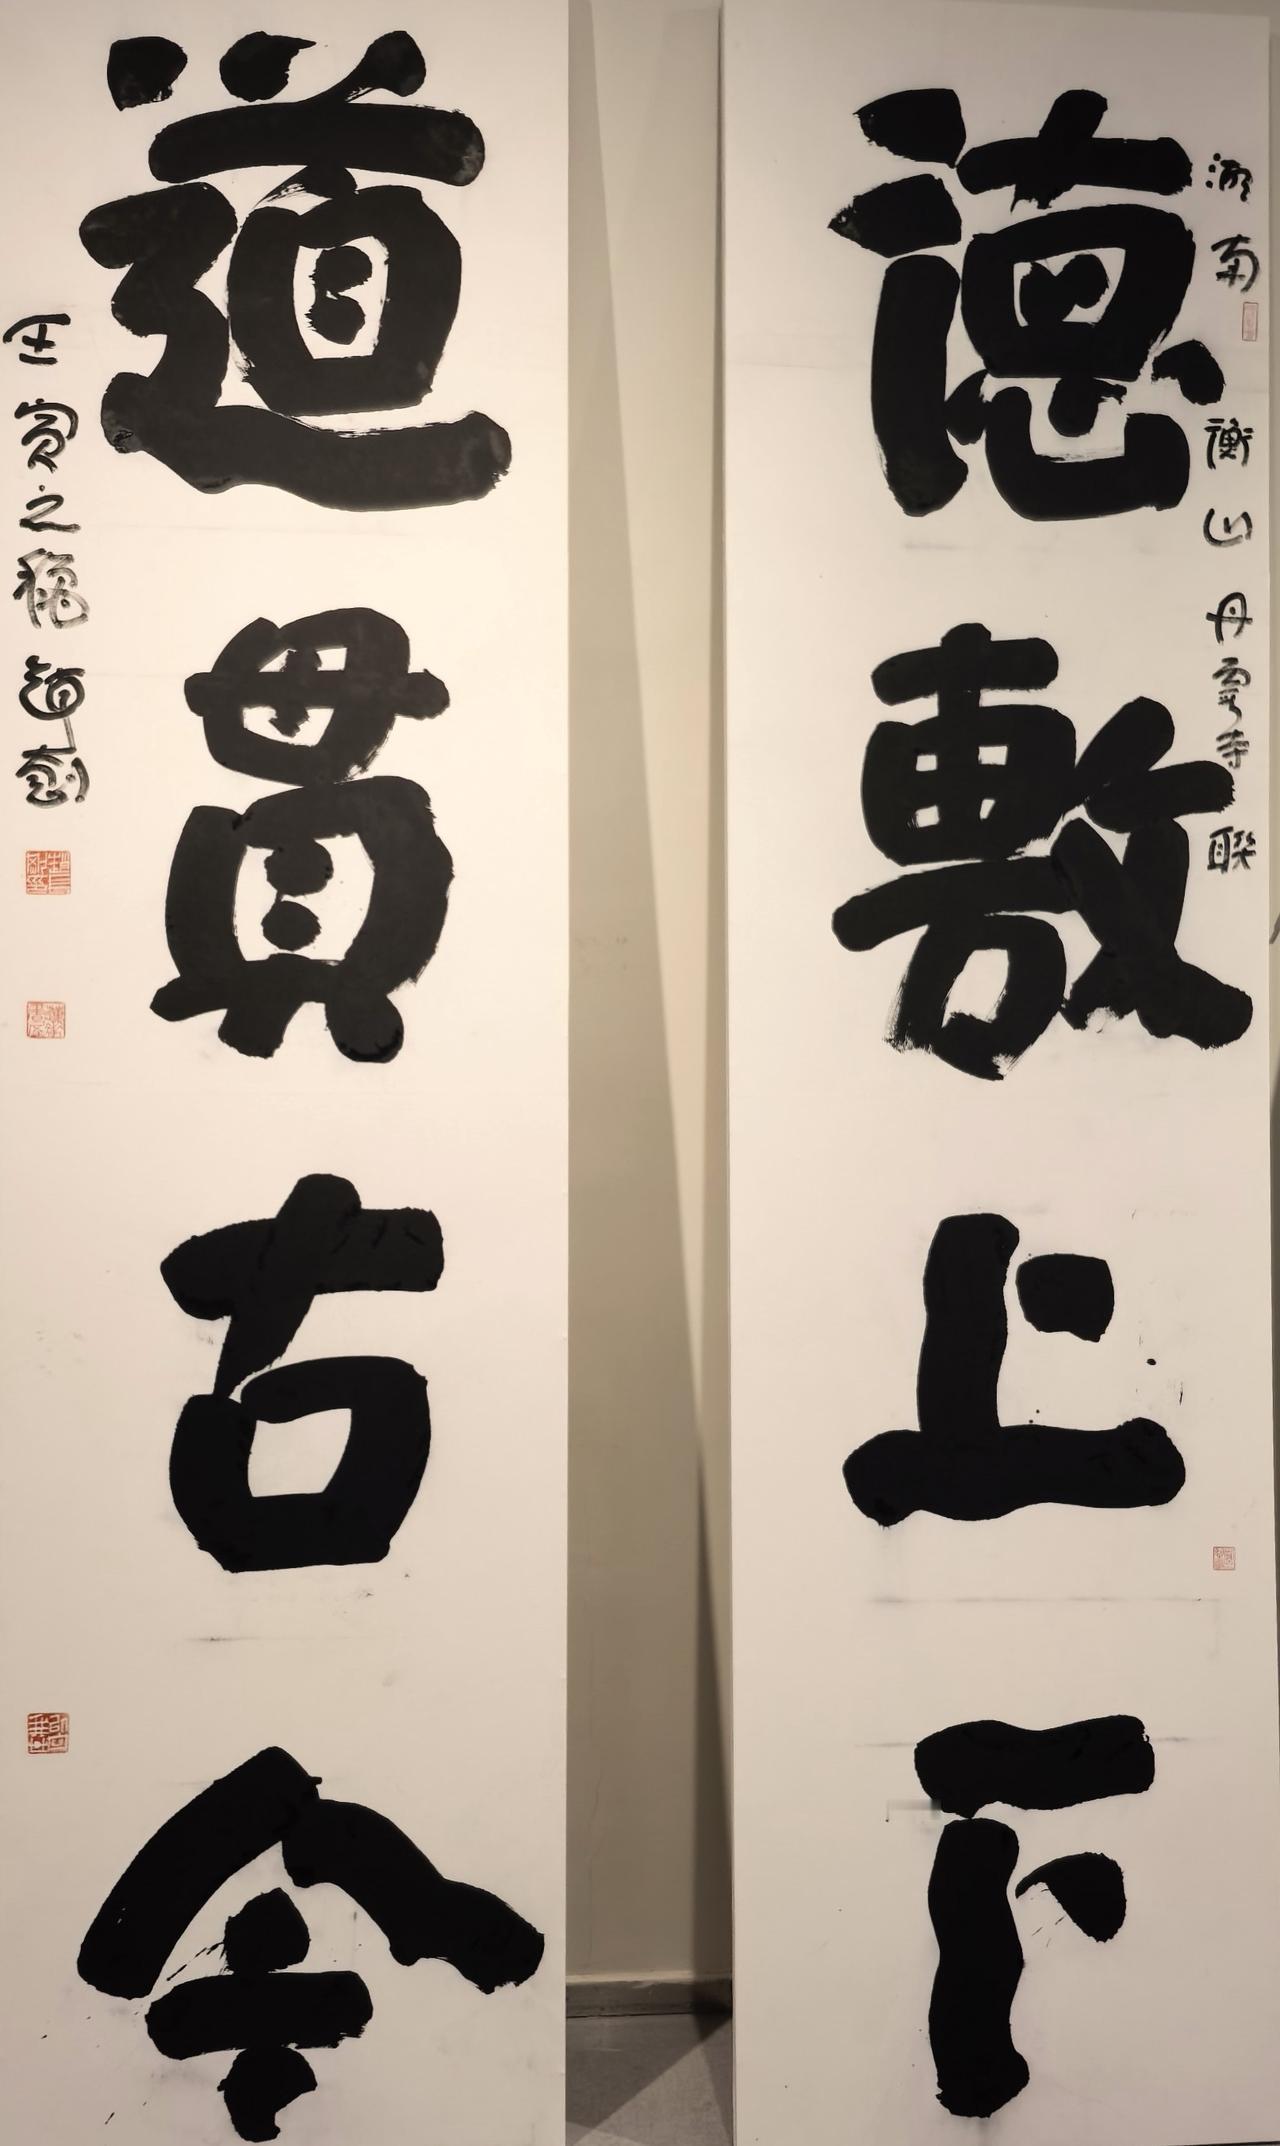 湖南衡山丹霞寺聯
徳敷上下
道貫古今
壬寅之龝